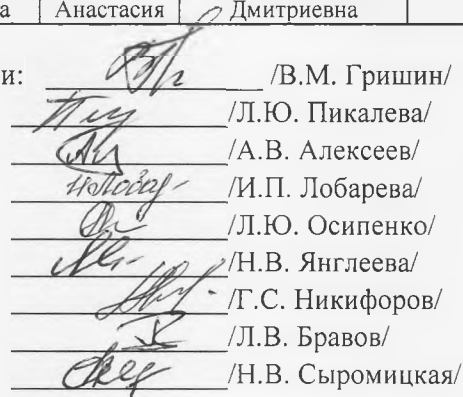 а Анастасия Дмитриевна
и: /В.М. Гришин/
/Л.Ю. Пикалева/
/А.В. Алексеев/
/И.П. Лобарева/
/Л.Ю. Осипенко/
/Н.В. Янглеева/
/Г.С. Никифоров/
/Л.В. Бравов/
/Н.В. Сыромицкая/